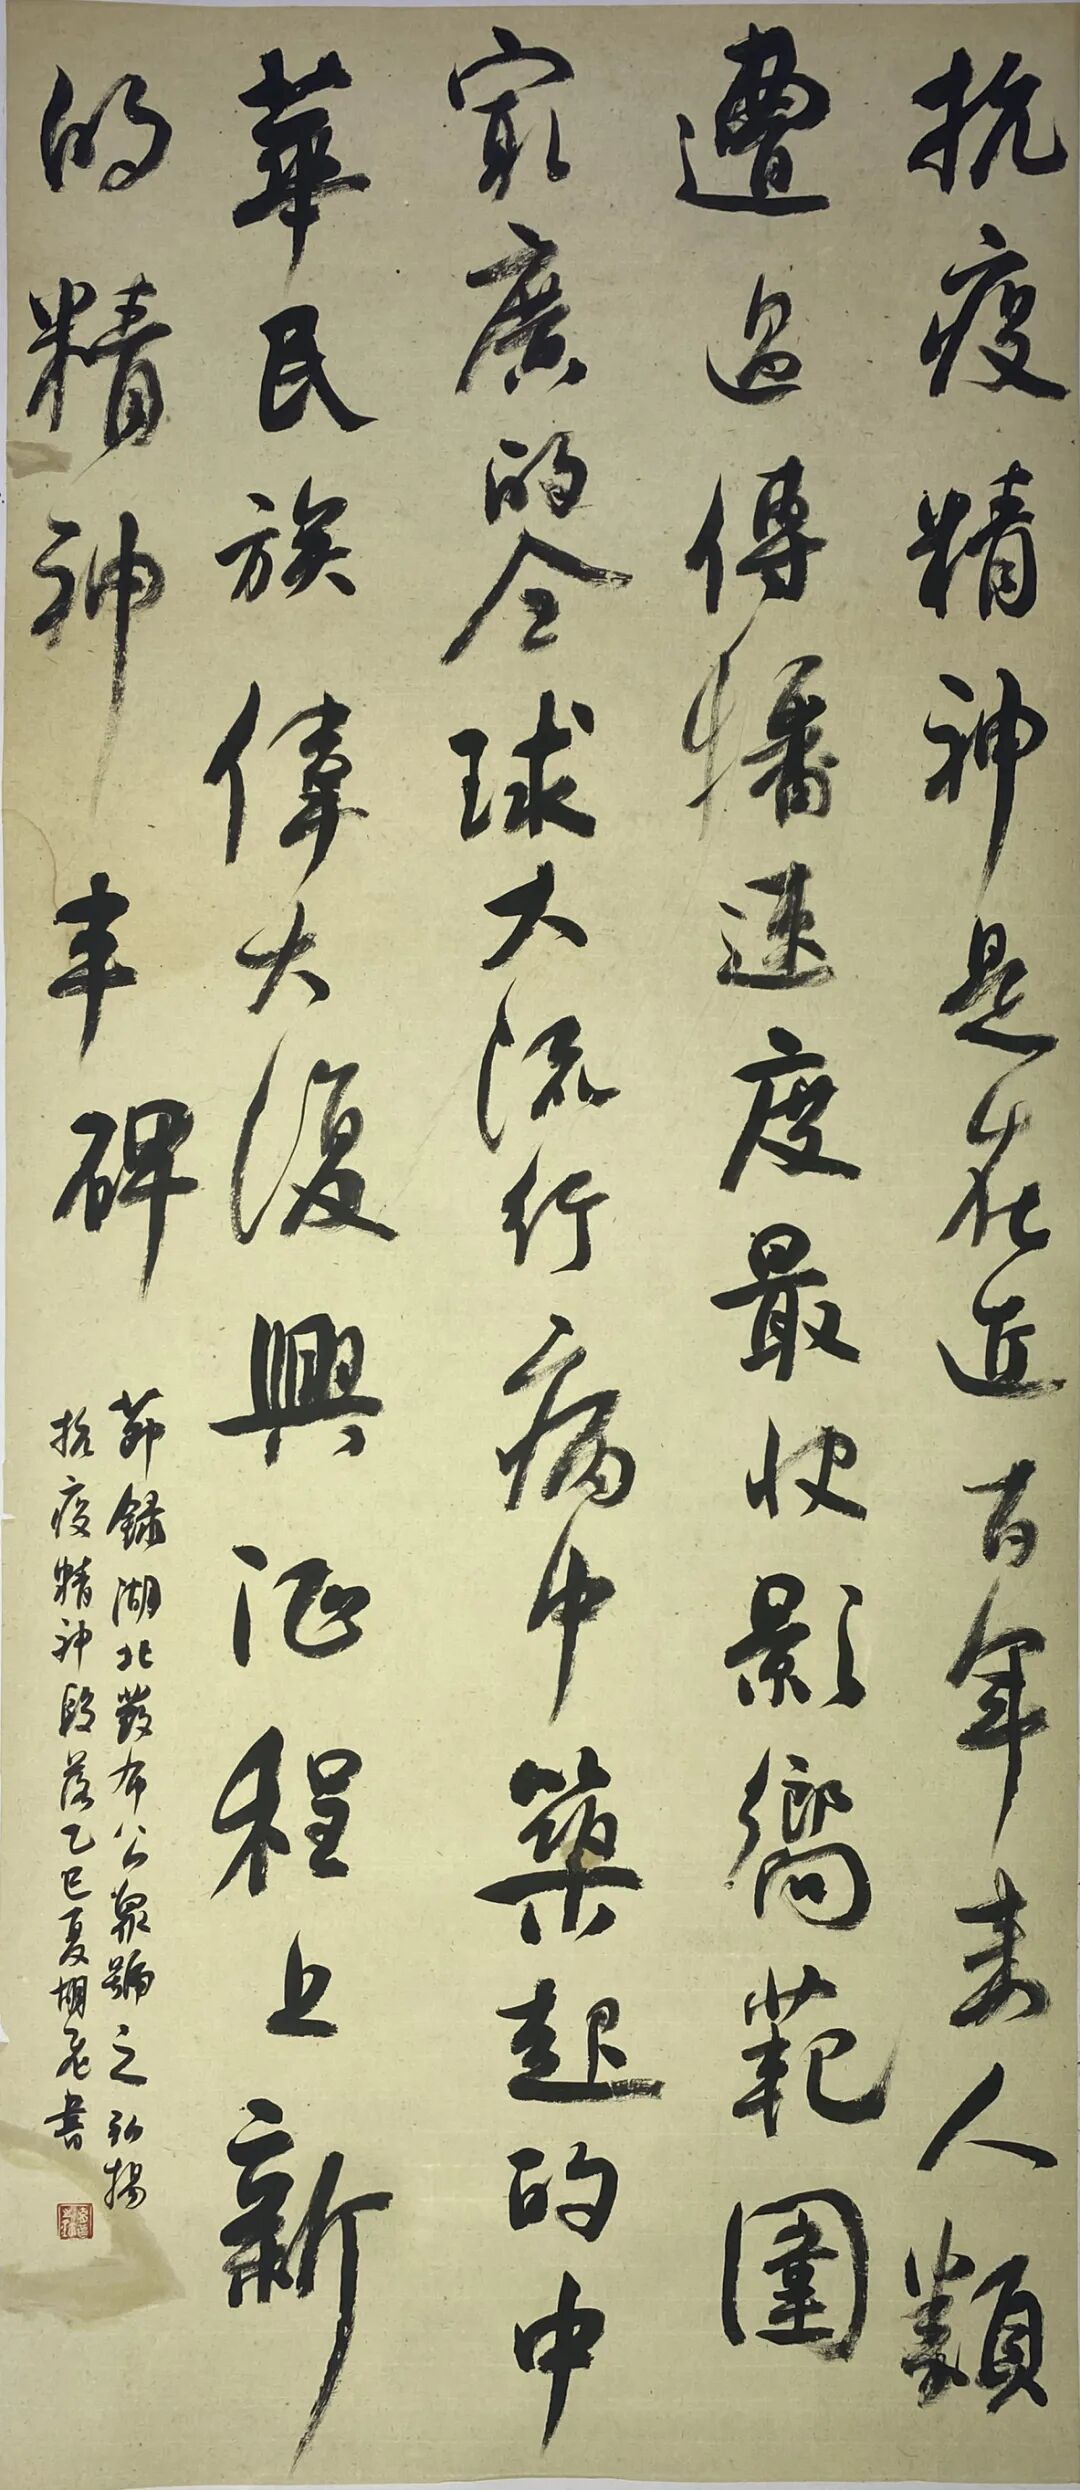 抗疫精神是在近百年来人類
遭遇傳播速度最快影嚮範圍
最廣的全球大流行病中築起的中
華民族偉大復興征程上新
的精神丰碑
節録湖北發布公衆號之弘揚
抗疫精神段落乙巳夏胡書